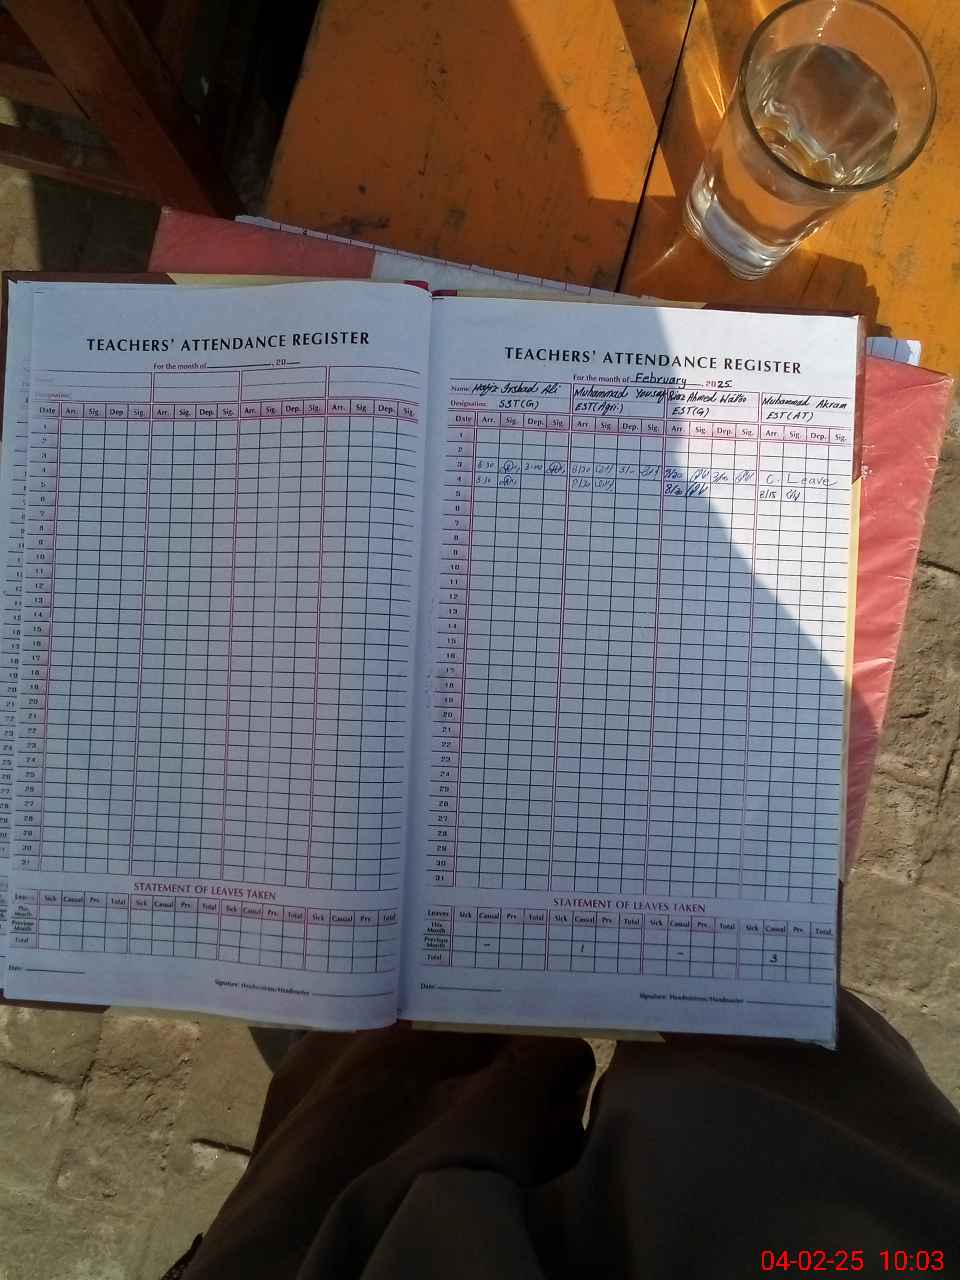 TEACHERS' ATTENDANCE REGISTER
For the month of , 20
Designation:
Date Arr. Sig. Dep. Sig. Arr. Sig. Dep. Sig. Arr. Sig. Dep. Sig. Arr. Sig. Dep. Sig.
1
2
3
4
5
6
7
8
9
10
11
12
13
14
15
16
17
18
19
20
21
22
23
24
25
26
27
28
29
30
31
STATEMENT OF LEAVES TAKEN
Leaves Sick Casual Prv. Total Sick Casual Prv. Total Sick Casual Prv. Total Sick Casual Prv. Total
This Month
Previous Month
Total
Date:
Signature: Headmistress/Headmaster
TEACHERS' ATTENDANCE REGISTER
For the month of February , 2025
Name: Hafiz Irshad Ali Muhammad Yousaf Riaz Ahmed Wattoo Muhammad Akram
Designation: SST(G) EST(Agri.) EST(G) EST(AT)
Date Arr. Sig. Dep. Sig. Arr. Sig. Dep. Sig. Arr. Sig. Dep. Sig. Arr. Sig. Dep. Sig.
1
2
3 8 30 3-00 8/30 8/30 C. Leave
4 8/30 8/30 8/15
5
6
7
8
9
10
11
12
13
14
15
16
17
18
19
20
21
22
23
24
25
26
27
28
29
30
31
STATEMENT OF LEAVES TAKEN
Leaves Sick Casual Prv. Total Sick Casual Prv. Total Sick Casual Prv. Total Sick Casual Prv. Total
This Month
Previous Month - 1 - 3
Total
Date:
Signature: Headmistress/Headmaster
04-02-25 10:03